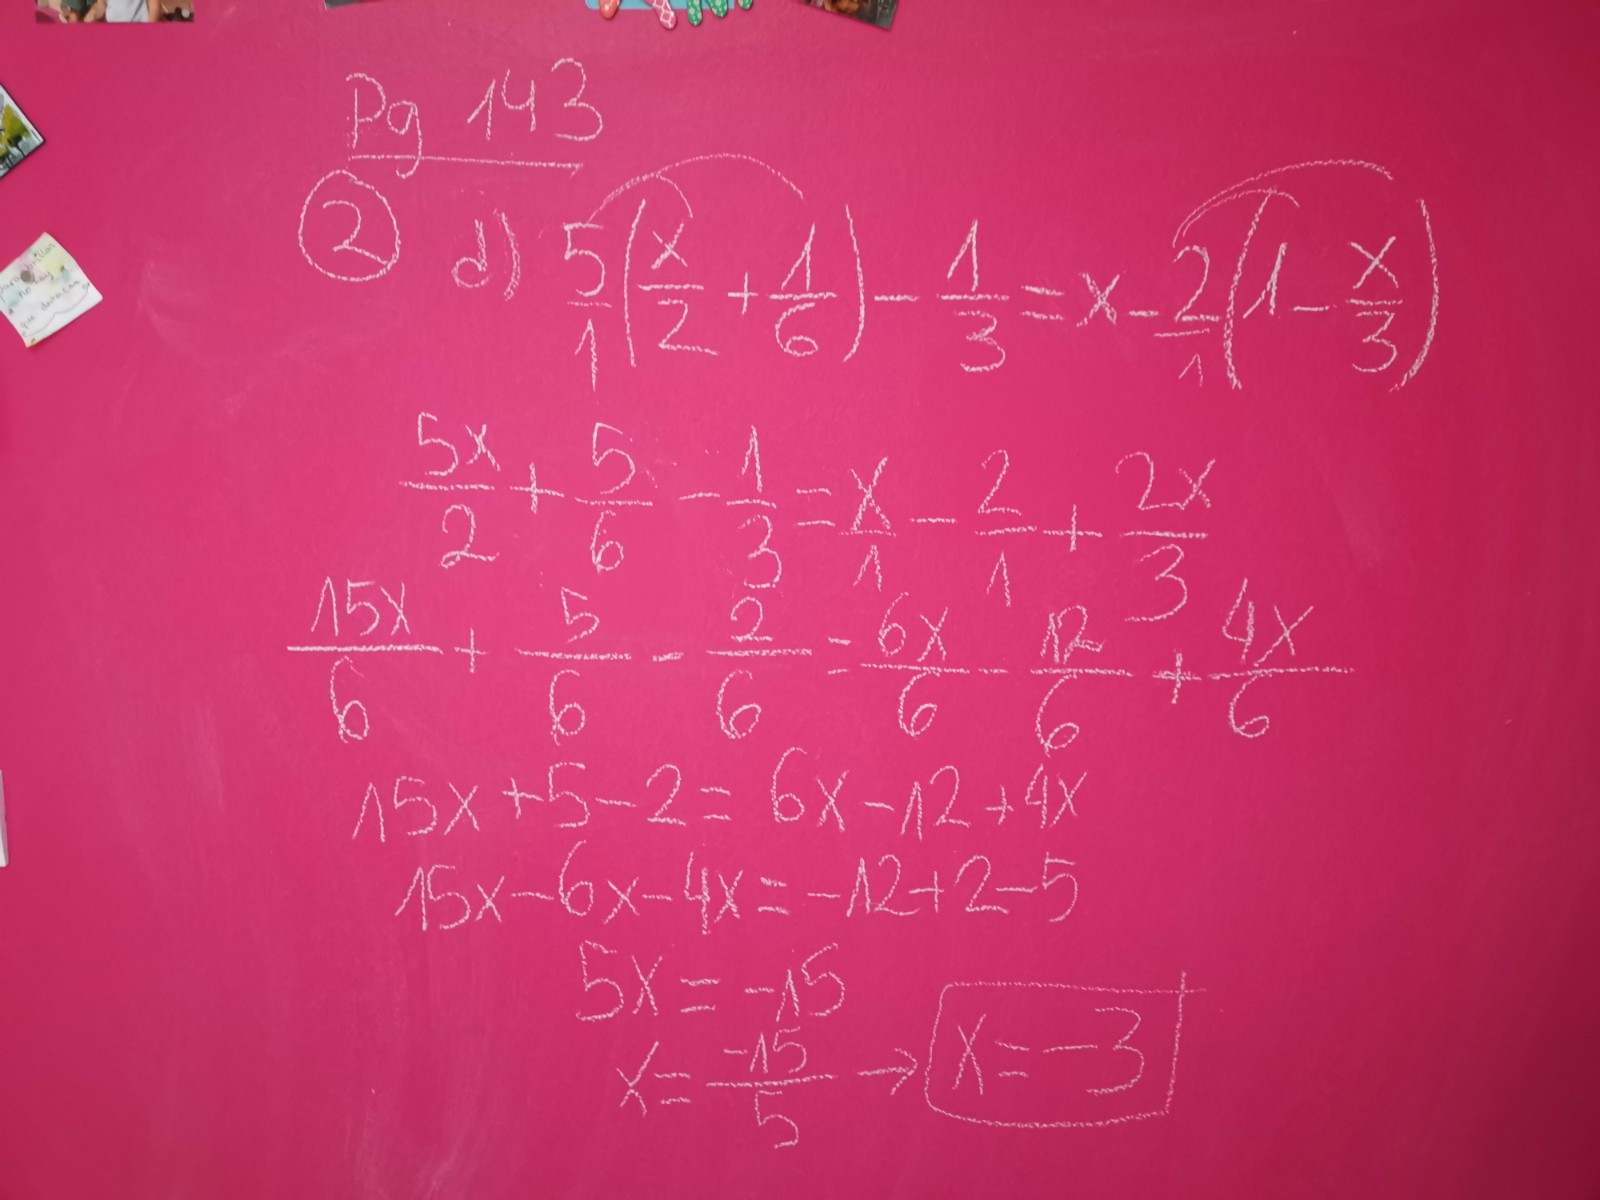 Pg 143
② d) 5/1 (x/2 + 1/6) - 1/3 = x - 2/1 (1 - x/3)
5x/2 + 5/6 - 1/3 = x/1 - 2/1 + 2x/3
15x/6 + 5/6 - 2/6 = 6x/6 - 12/6 + 4x/6
15x + 5 - 2 = 6x - 12 + 4x
15x - 6x - 4x = -12 + 2 - 5
5x = -15
x = -15/5 → x = -3